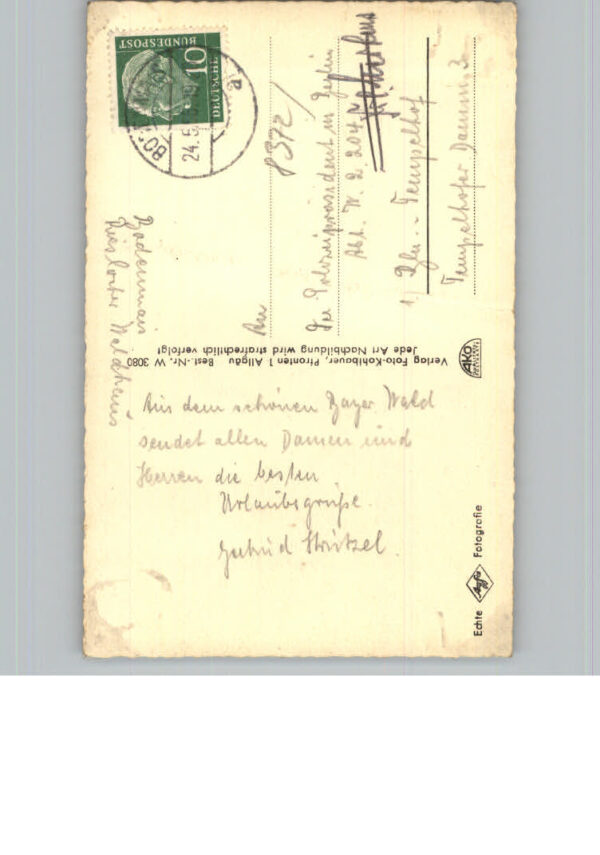 DEUTSCHE
BUNDESPOST
10
24.5
a
8372
An
Der Polizeipräsident in Berlin
Abt. W. 2. 204
1) Bln. - Tempelhof
Tempelhofer Damm
Bodenmais
Waldheim
Verlag Foto-Kohlbauer, Pfronten 1 Allgäu Best.-Nr. W 3080
Jede Art Nachbildung wird strafrechtlich verfolgt
AKO
Aus dem schönen Bayer. Wald
sendet allen Damen und
Herren die besten
Urlaubsgrüße.
Gertrud
Echte Agfa Fotografie